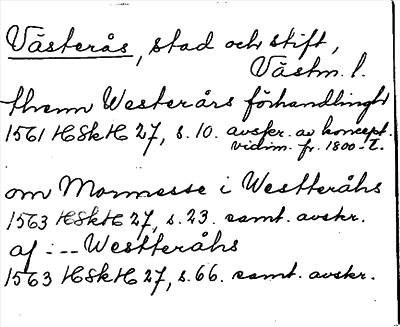 Västerås, stad och stift,
Västm. l.
thenn Westerårs förhandlingh
1561 HSkH 27, s. 10. avskr. av koncept.
vidim. fr. 1800-t.
om Mormesse i Westteråhs
1563 HSkH 27, s. 23. samt. avskr.
af :-- Westteråhs
1563 HSkH 27, s. 66. samt. avskr.